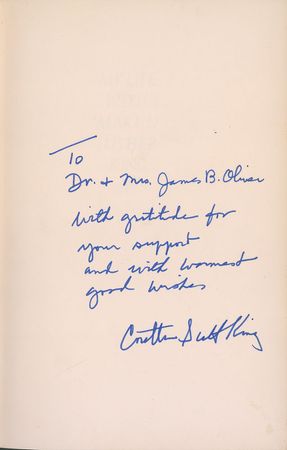 To
Dr. + Mrs. James B. Oliver
With gratitude for
your support
and with warmest
good wishes
Coretta Scott King